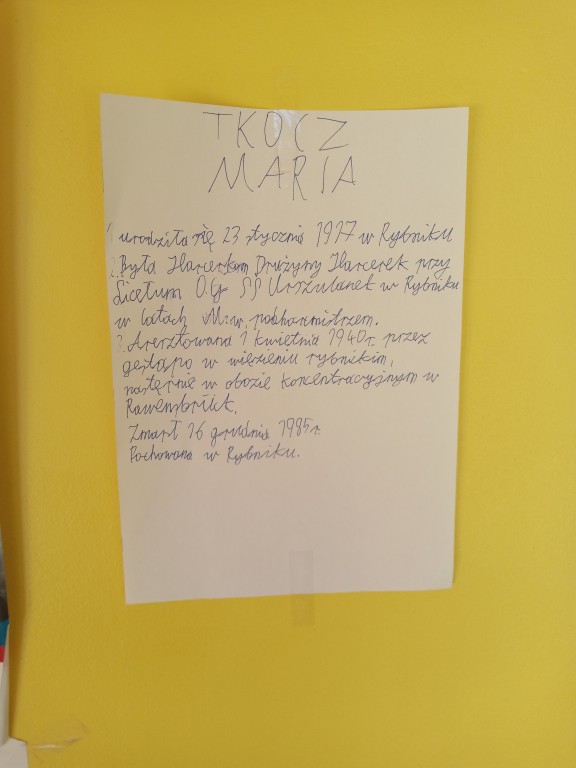 TKOCZ
MARIA
1. urodziła się 23 stycznia 1917 w Rybniku
2. Była Harcerkom Drużyny Harcerek przy
Licetum O.G SS Urszulanek w Rybniku
w latach M.w. podharcmistrzem.
3. Aresztowana 1 kwietnia 1940r. przez
gestapo w więzieniu rybnickim,
następnie w obozie koncentracyjnym w
Rawensbrück.
Zmarł 16 grudnia 1985r.
Pochowana w Rybniku.